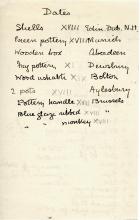 Dates
Shells XVIII Edin. Dub. N.H.
Green pottery XVIII Munich
Wooden box Aberdeen
Toy pottery X Dewsbury
Wood ushabti X Bolton
2 pots XVIII Aylesbury
Pottery handle XVIII Brussels
Blue glaze ribbed XVIII
" " monkey XVIII